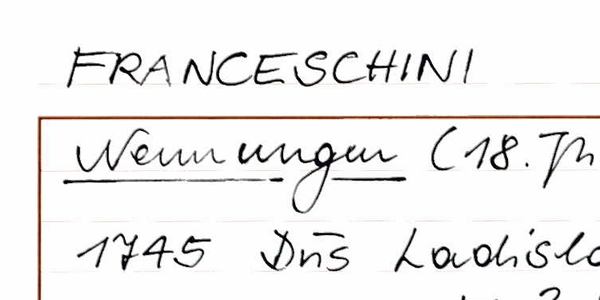 FRANCESCHINI
Nennungen (18. Jh
1745 Dn̄s Ladisla